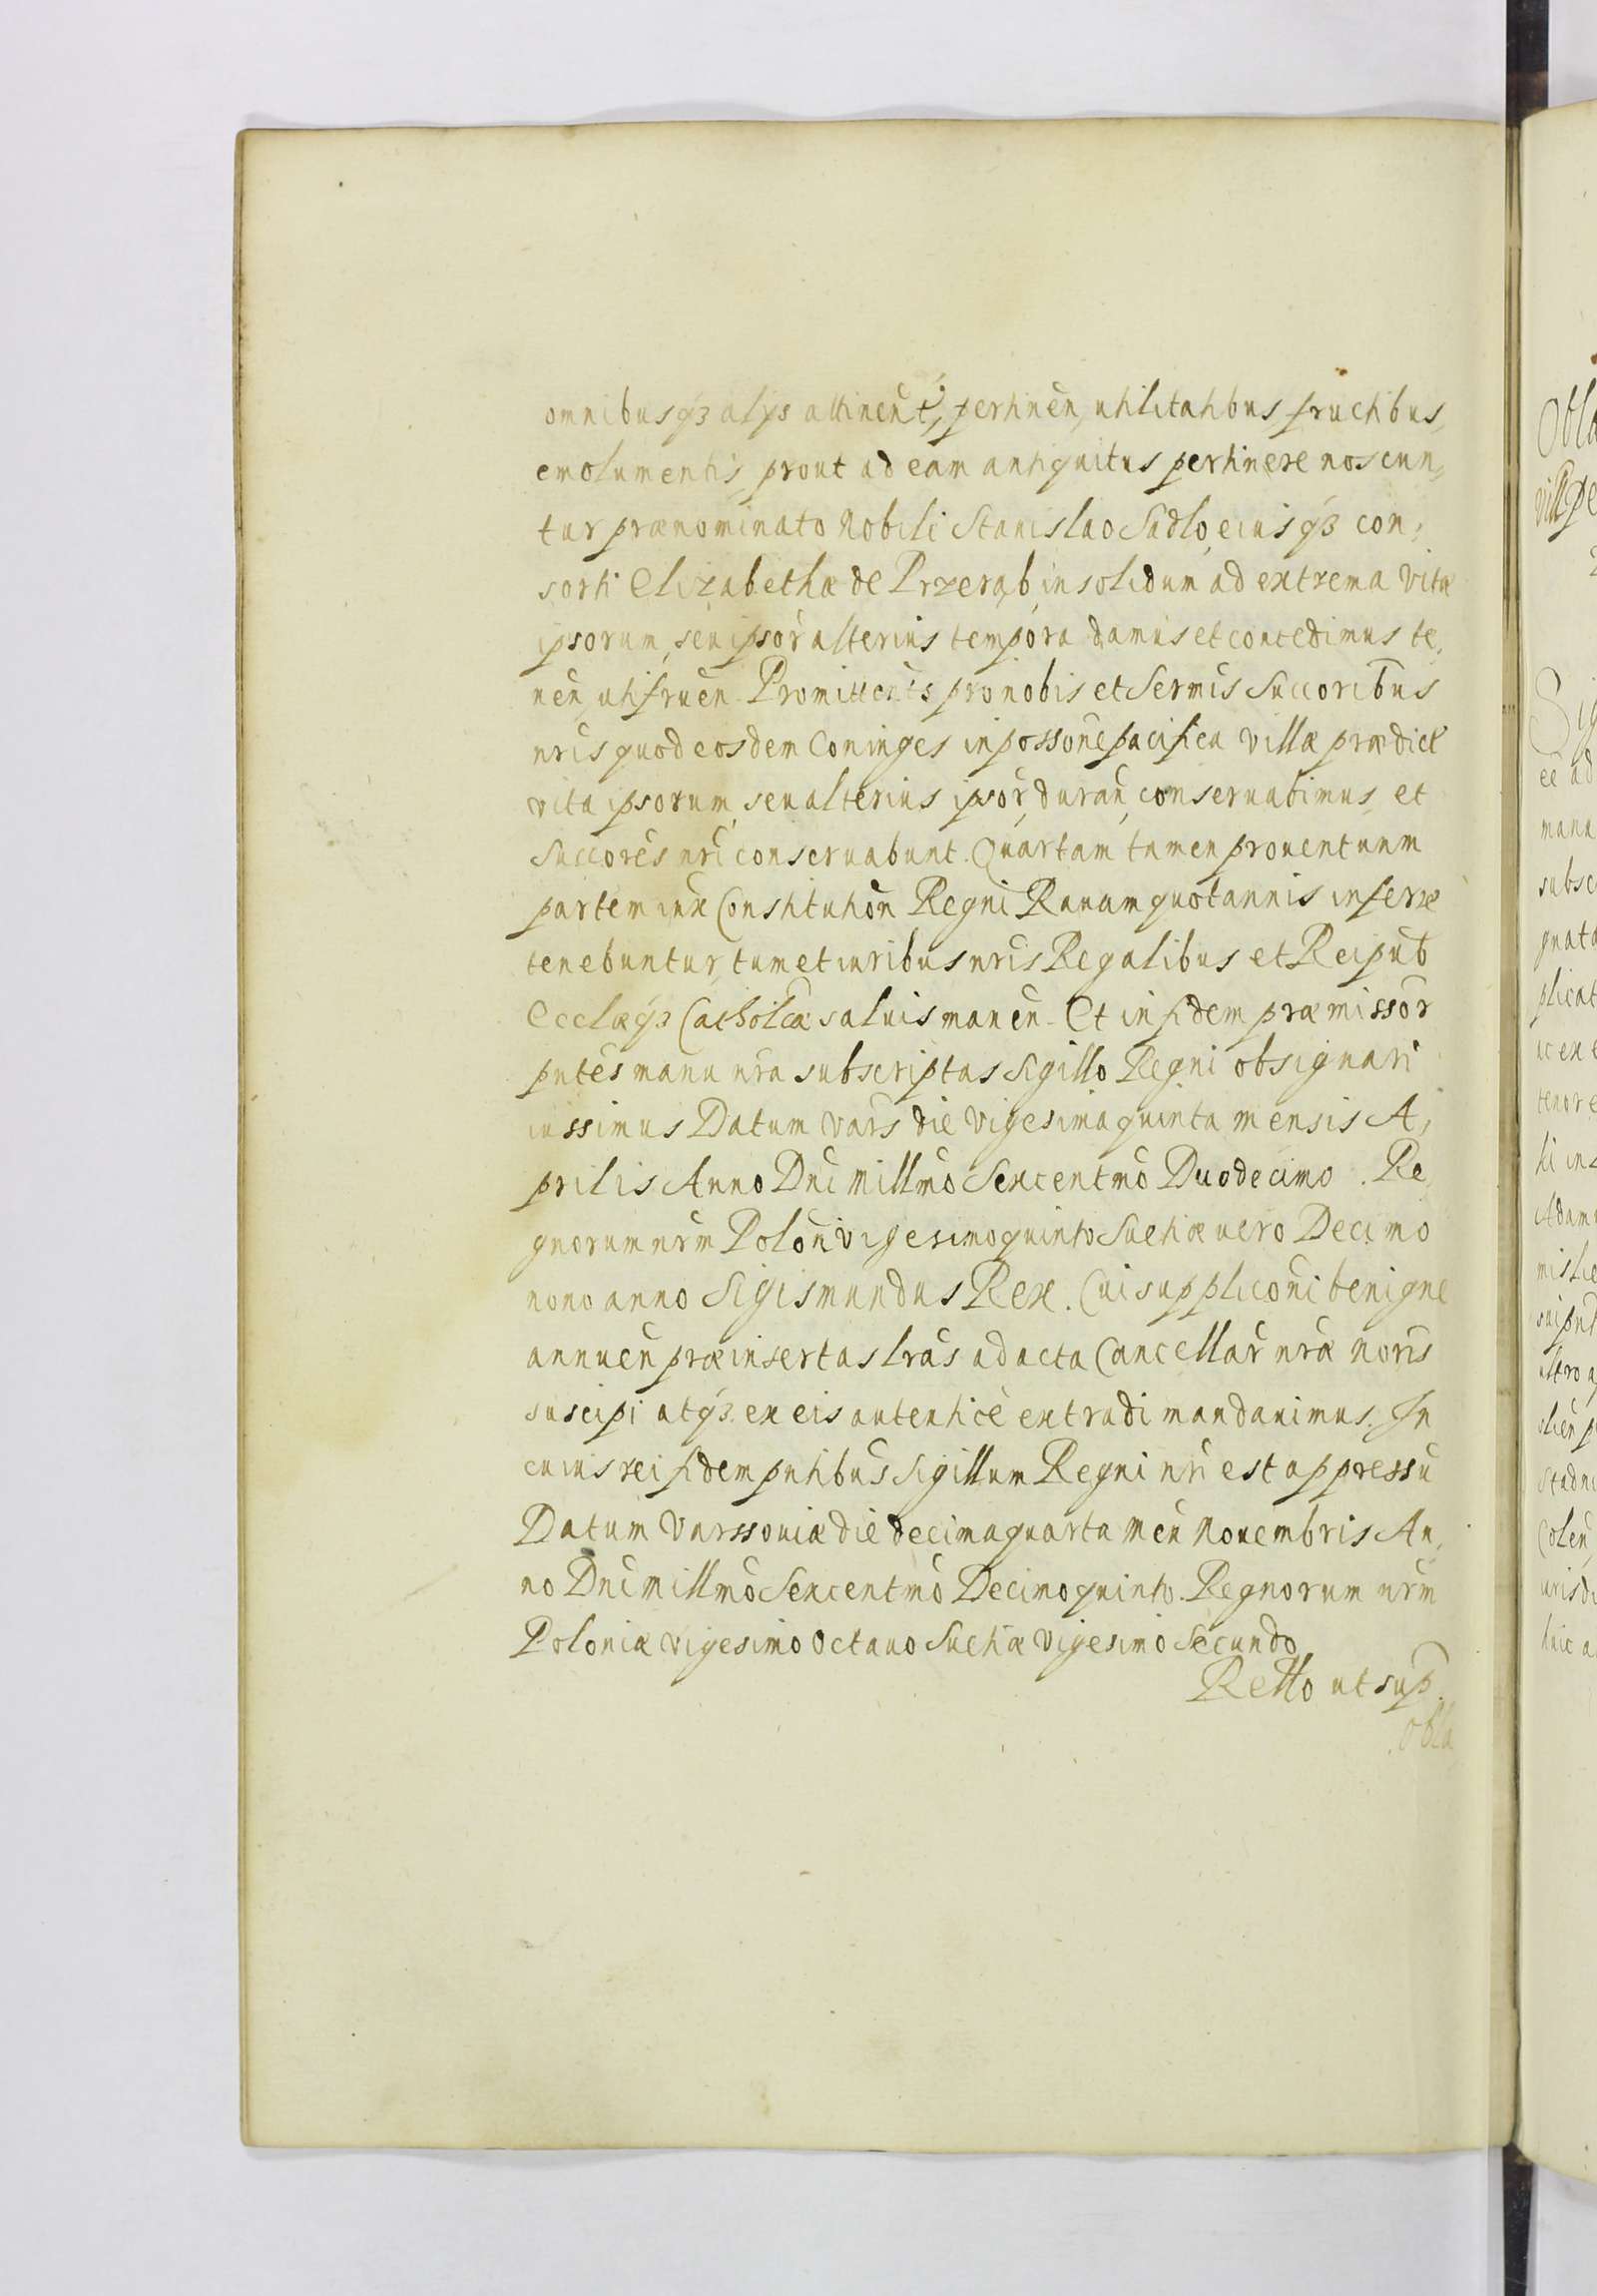 omnibusq₃ alÿs attineñt, pertineñ, utilitatibus fructibus,
emolumentis, prout ad eam antiquitus pertinere noscun,
tur prænominato Nobili Stanislao Sadlo, eiusq₃ con,
sorti Elizabethæ de Przerąb, in solidum ad extrema vitæ
ipsorum, seu ipsor̃ alterius tempora damus et concedimus te,
neñ, utifrueñ. Promittentes pro nobis et Sermis Succoribus
nris quod eosdem Coniuges in possone pacifica villæ prædict
vita ipsorum, seu alterius ipsor̃, durañ, conseruabimus, et
Succores nri conseruabunt. Quartam tamen prouentuum
partem iux Constitutioñ Regni Rauam quotannis inferre
tenebuntur, tum et iuribus nris Regalibus et Reipub
Ecclæq₃ Catholicæ saluis maneñ. Et in fidem præmissor̃
pntes manu nra subscriptas Sigillo Regni obsignari
iussimus Datum Vars die vigesima quinta mensis A,
prilis Anno Dni Millmo Sexcentmo Duodecimo. Re,
gnorum nrm Poloñ vigesimoquinto Suetiæ uero Decimo
nono anno Sigismundus Rex. Cui suppliconi benigne
annueñ præinsertas lras ad acta Cancellar̃ nræ Noris
suscipi atq₃ ex eis autentice extradi mandauimus. In
cuius rei fidem pntibus Sigillum Regni nri est appressũ
Datum Varssouiæ die decima quarta Meñ Nouembris An,
no Dni Millmo Sexcentmo Decimoquinto. Regnorum nrm
Poloniæ vigesimo Octauo Suetiæ vigesimo Secundo
Retto ut sup.
Obla